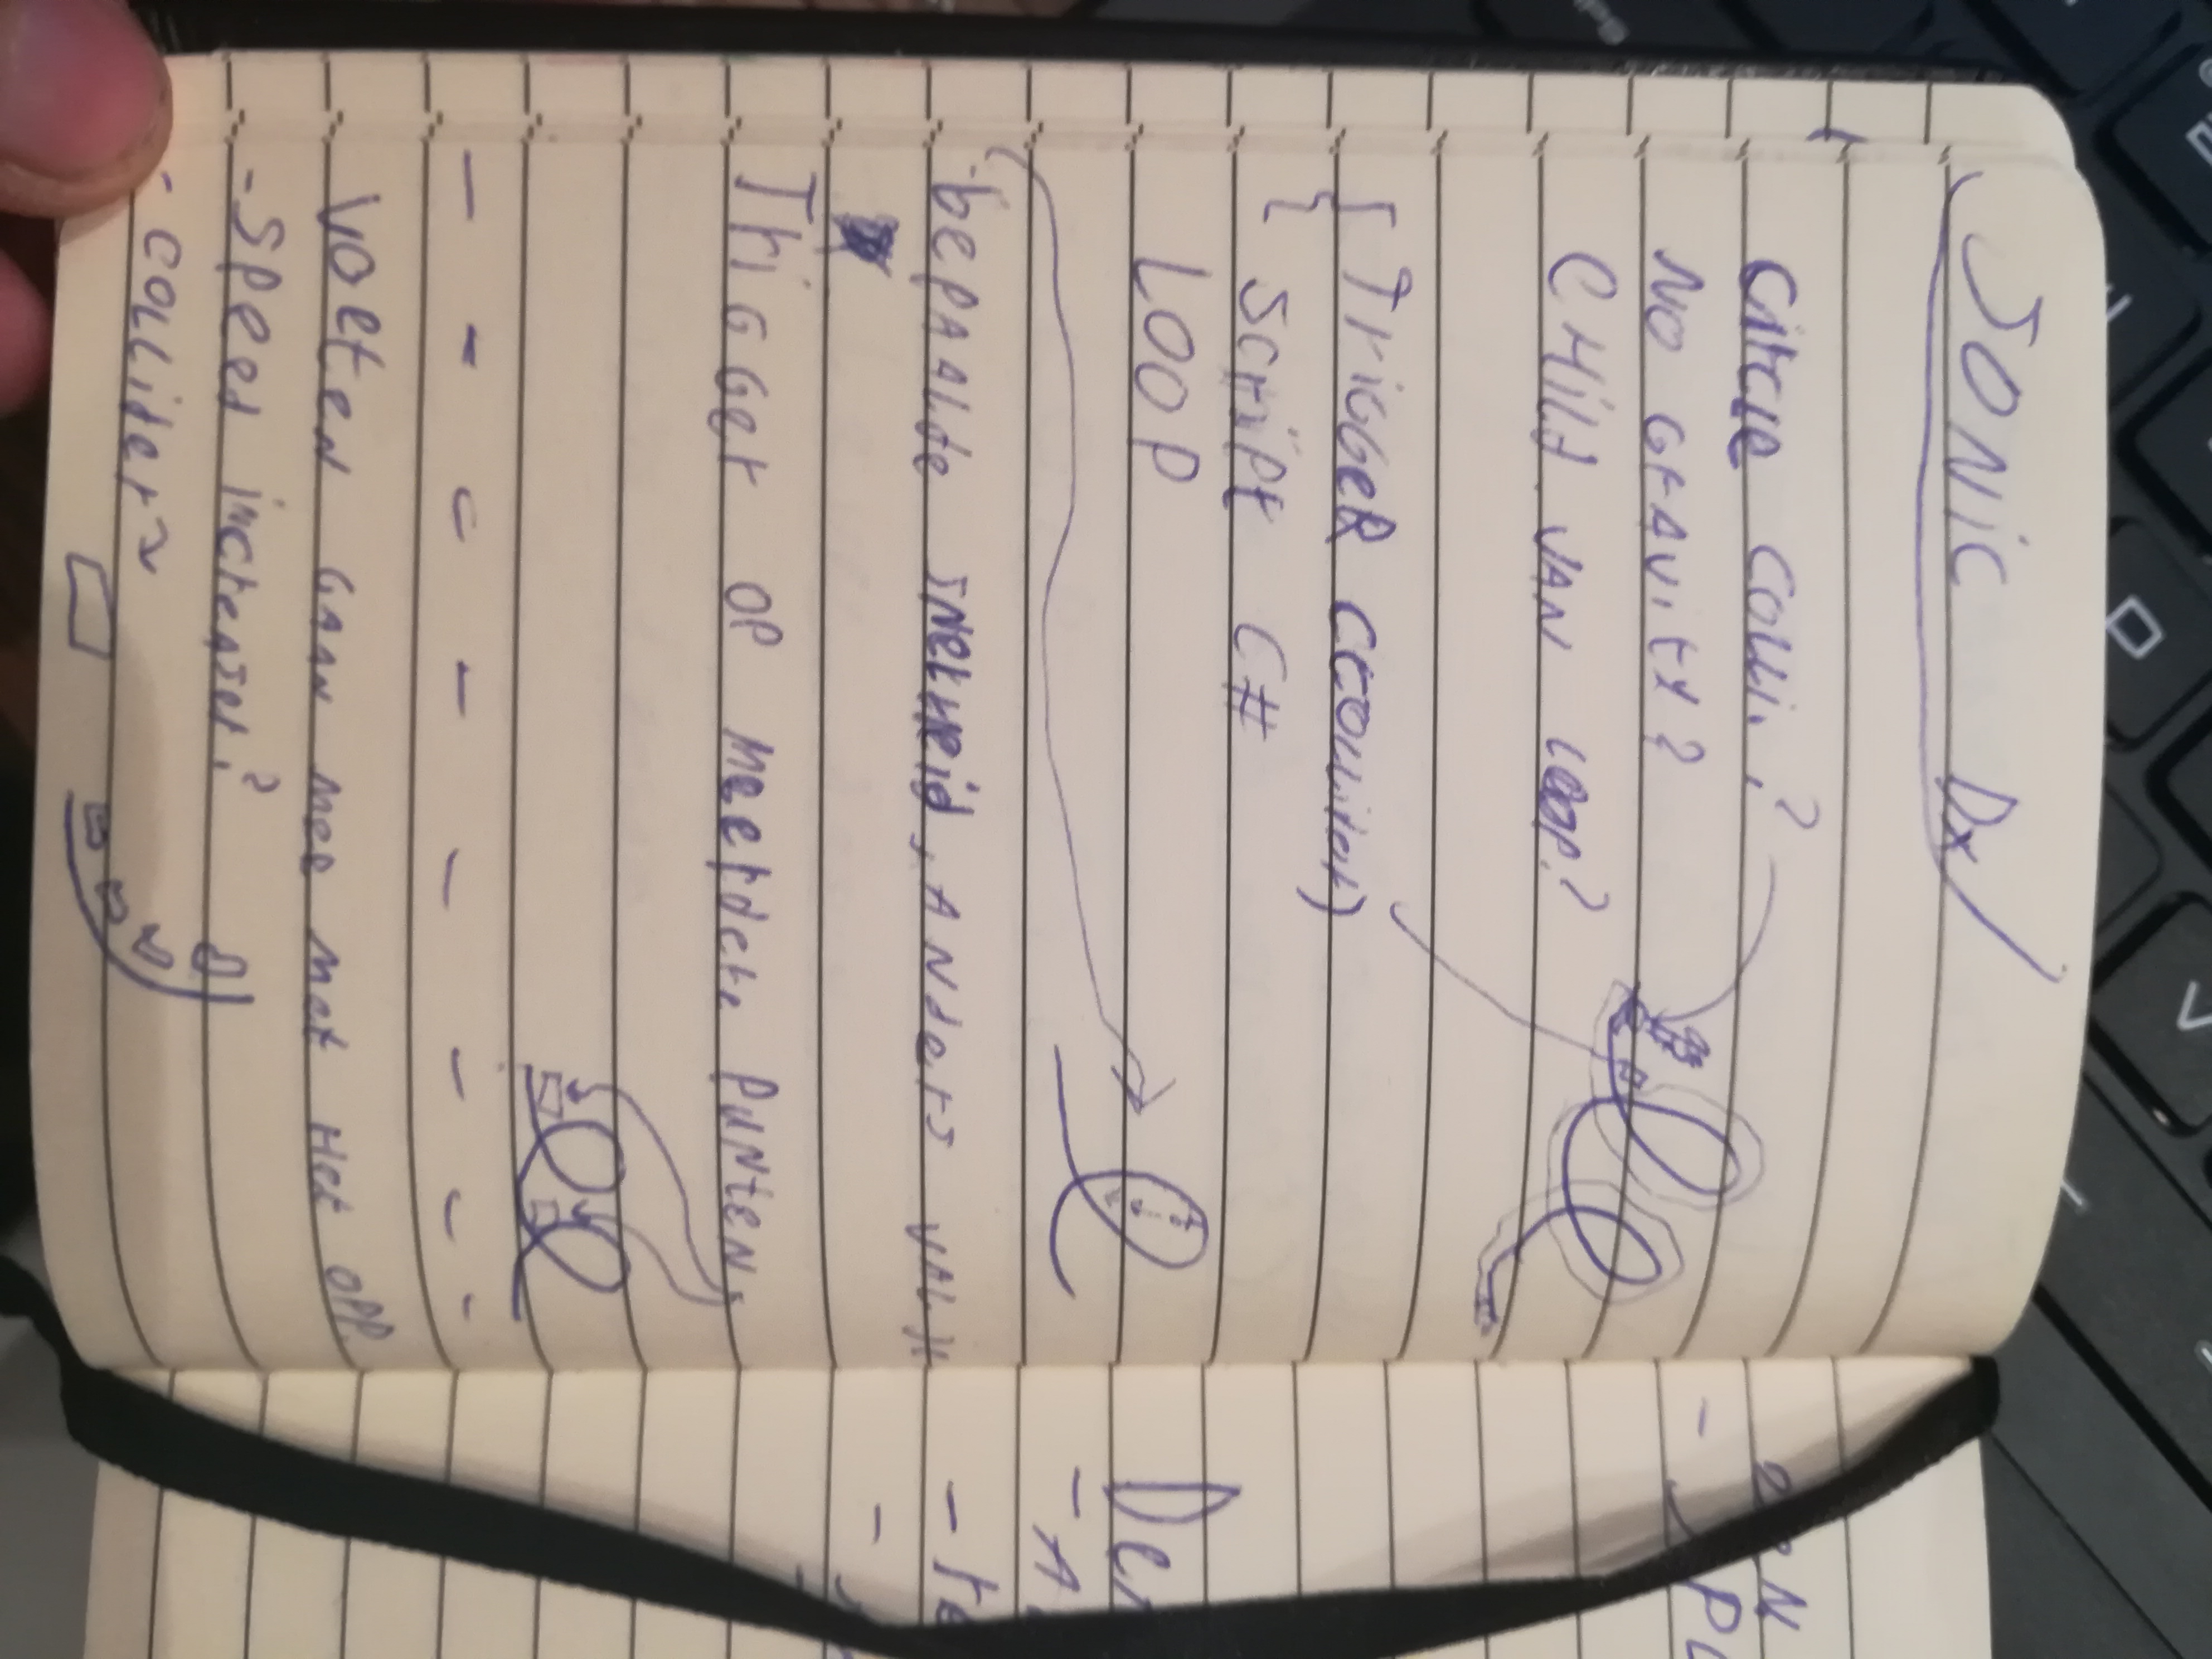 Sonic Dx
Circle Colli.?
No Gravity?
Child van loop?
[Trigger (Collider)
{ Script C#
Loop
(bepaalde snelheid, anders val))
Trigger op meerdere punten.
Voeten gaan mee met het opp.
- Speed increaser?
- Collider
-
- A
- te
-